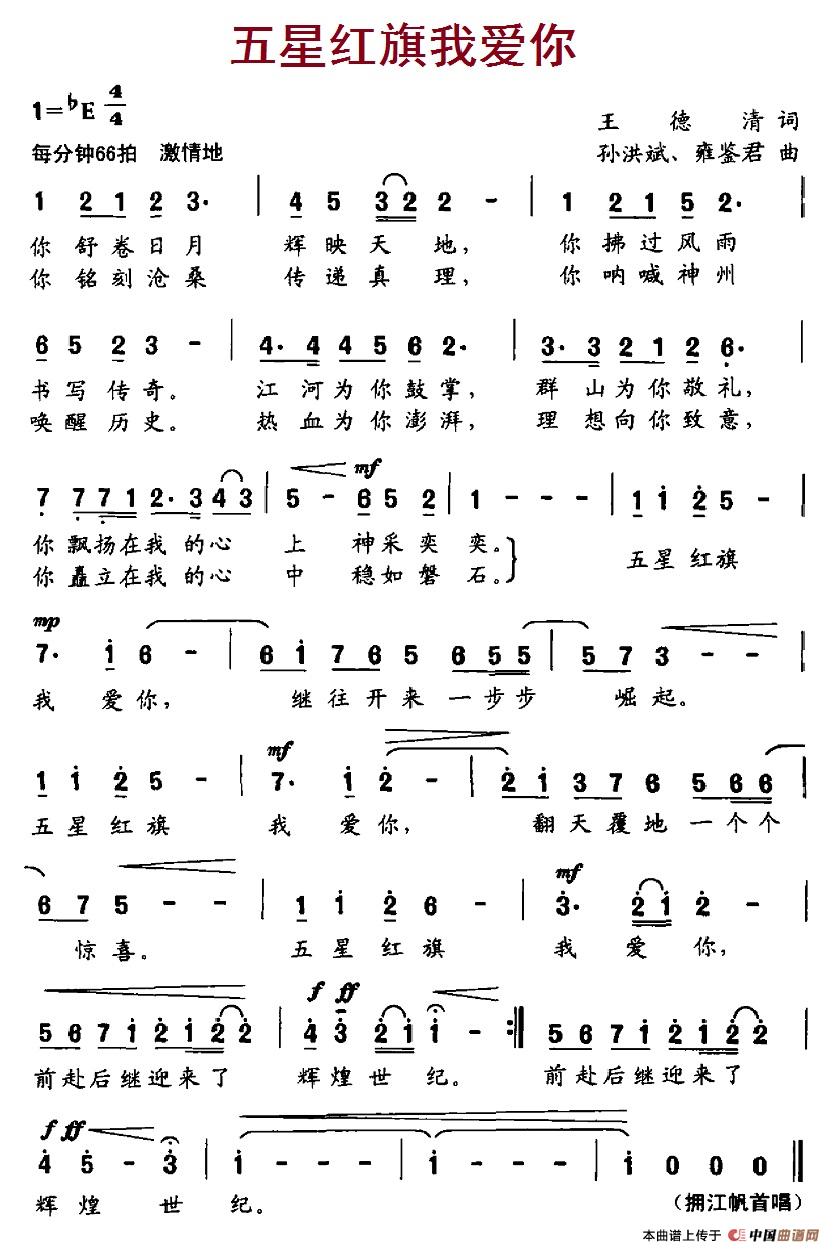 五星红旗我爱你
1=♭E 4/4
王德清词
每分钟66拍 激情地
孙洪斌、雍鉴君曲
1 2 1 2 3· | 4 5 3 2 2 - | 1 2 1 5 2· |
你舒卷日月 辉映天地， 你拂过风雨
你铭刻沧桑 传递真理， 你呐喊神州
6 5 2 3 - | 4· 4 4 5 6 2· | 3· 3 2 1 2 6· |
书写传奇。 江河为你鼓掌， 群山为你敬礼，
唤醒历史。 热血为你澎湃， 理想向你致意，
mf
7 7 7 1 2· 3 4 3 | 5 - 6 5 2 | 1 - - - | 1 1 2 5 - |
你飘扬在我的心上 神采奕奕。 五星红旗
你矗立在我的心中 稳如磐石。
mp
7· 1 6 - | 6 1 7 6 5 6 5 5 | 5 7 3 - - |
我爱你， 继往开来一步步 崛起。
mf
1 1 2 5 - | 7· 1 2 - | 2 1 3 7 6 5 6 6 |
五星红旗 我爱你， 翻天覆地一个个
mf
6 7 5 - - | 1 1 2 6 - | 3· 2 1 2 - |
惊喜。 五星红旗 我爱你，
f ff
5 6 7 1 2 1 2 2 | 4 3 2 1 1 - :| 5 6 7 1 2 1 2 2 |
前赴后继迎来了 辉煌世纪。 前赴后继迎来了
f ff
4 5 - 3 | 1 - - - | 1 - - - | 1 0 0 0 ‖
辉煌世纪。 （拥江帆首唱）
本曲谱上传于 中国曲谱网